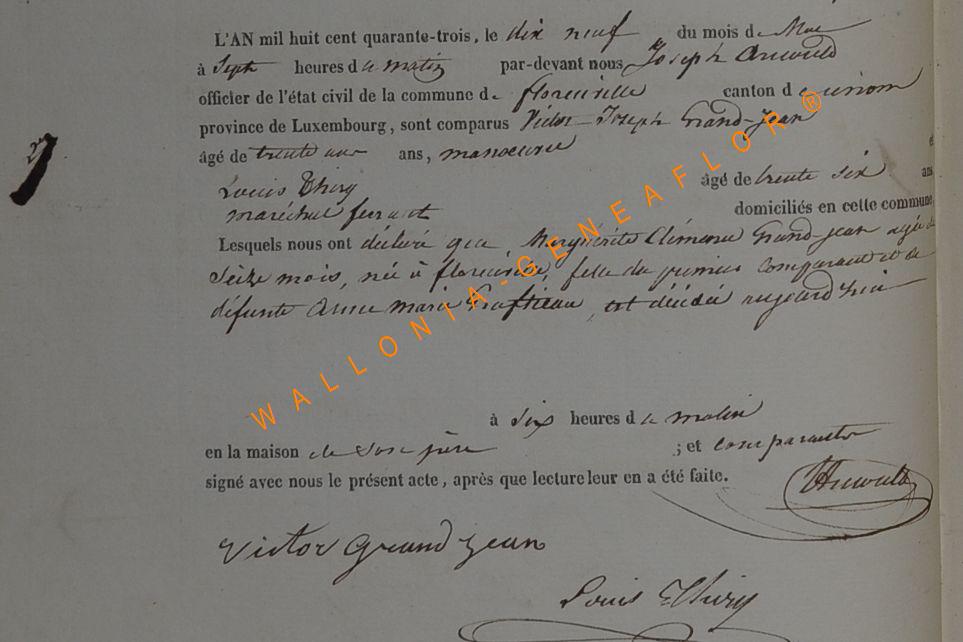 L'AN mil huit cent quarante-trois, le dix neuf du mois de Mai
à Sept heures du matin par-devant nous Joseph
officier de l'état civil de la commune de florenville canton d
province de Luxembourg, sont comparus Victor-Joseph Grand-Jean
âgé de trente ans, manoeuvre et
Louis Thiry âgé de trente six ans
maréchal ferrant domiciliés en cette commune,
Lesquels nous ont déclaré que Marguérite Clémence Grand-jean agée de
Seize mois, née à florenville, fille du premier Comparant et de
défunte Anne Marie est décédée aujourd'hui
à six heures du matin
en la maison de son père ; et comparants
signé avec nous le présent acte, après que lecture leur en a été faite.
Victor Grand Jean
Louis Thiry
WALLONIA-GENEAFLOR®